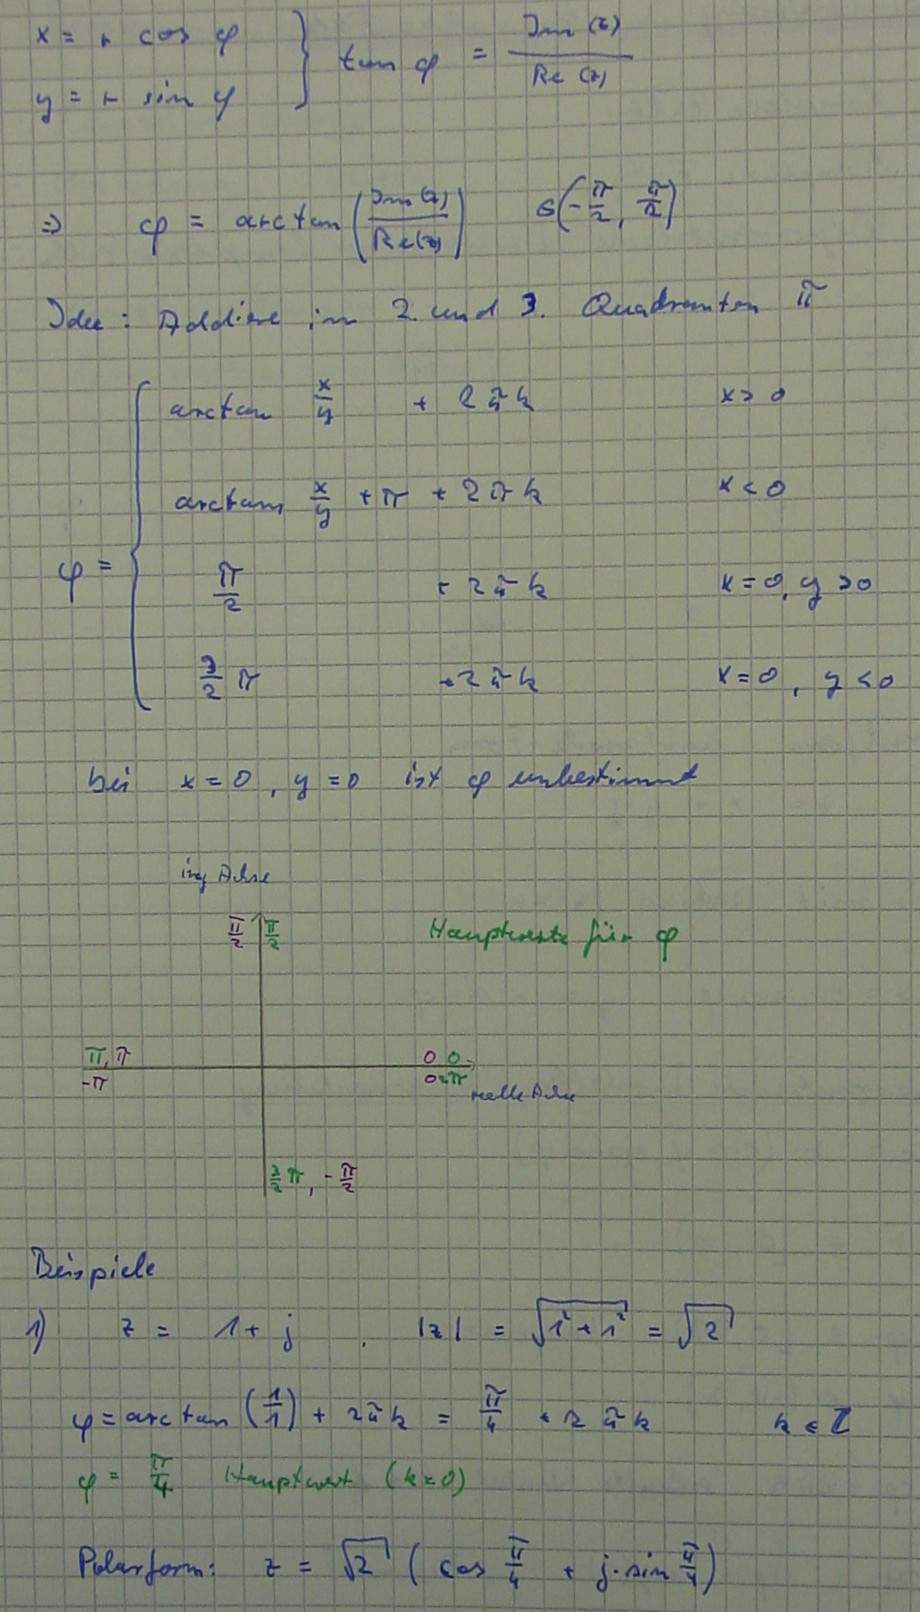 x = r cos φ
y = r sin φ } tan φ = Im(z)/Re(z)
⇒ φ = arctan(Im(z)/Re(z)) ∈(-π/2, π/2)
Idee: Addiere im 2. und 3. Quadranten π
φ = { arctan x/y + 2πk x > 0
arctan x/y + π + 2πk x < 0
π/2 + 2πk x = 0, y > 0
3/2 π + 2πk x = 0, y < 0
bei x = 0, y = 0 ist φ unbestimmt
img Achse
π/2 π/2 Hauptwerte für φ
π, π 0 0
-π 0 2π
reelle Achse
3/2 π, -π/2
Beispiele
1) z = 1 + j , |z| = √(1² + 1²) = √2
φ = arctan (1/1) + 2πk = π/4 + 2πk k ∈ Z
φ = π/4 Hauptwert (k=0)
Polarform: z = √2 (cos π/4 + j·sin π/4)